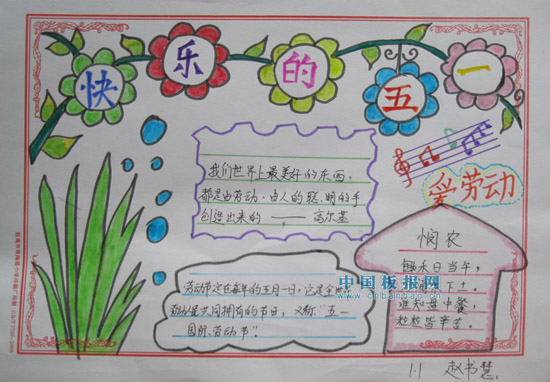 快乐的五一
爱劳动
我们世界上最美好的东西，
都是由劳动、由人的聪明的手
创造出来的 —— 高尔基
悯农
锄禾日当午，
下土。
谁知盘中餐
粒粒皆辛苦。
中国板报网
劳动节定在每年的五月一日，这是全世界
劳动人民共同拥有的节日，又称"五一
国际劳动节"。
1.1 赵书慧